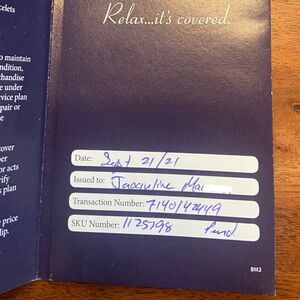 celets
Relax...it's covered.
to maintain
ondition,
rchandise
e under
rvice plan
epair or
me
cover
per
or acts
rify
s plan
e price
lip.
Date: Sept 21/21
Issued to: Jacqueline Mac
Transaction Number: 7140142449
SKU Number: 1125798
BM2